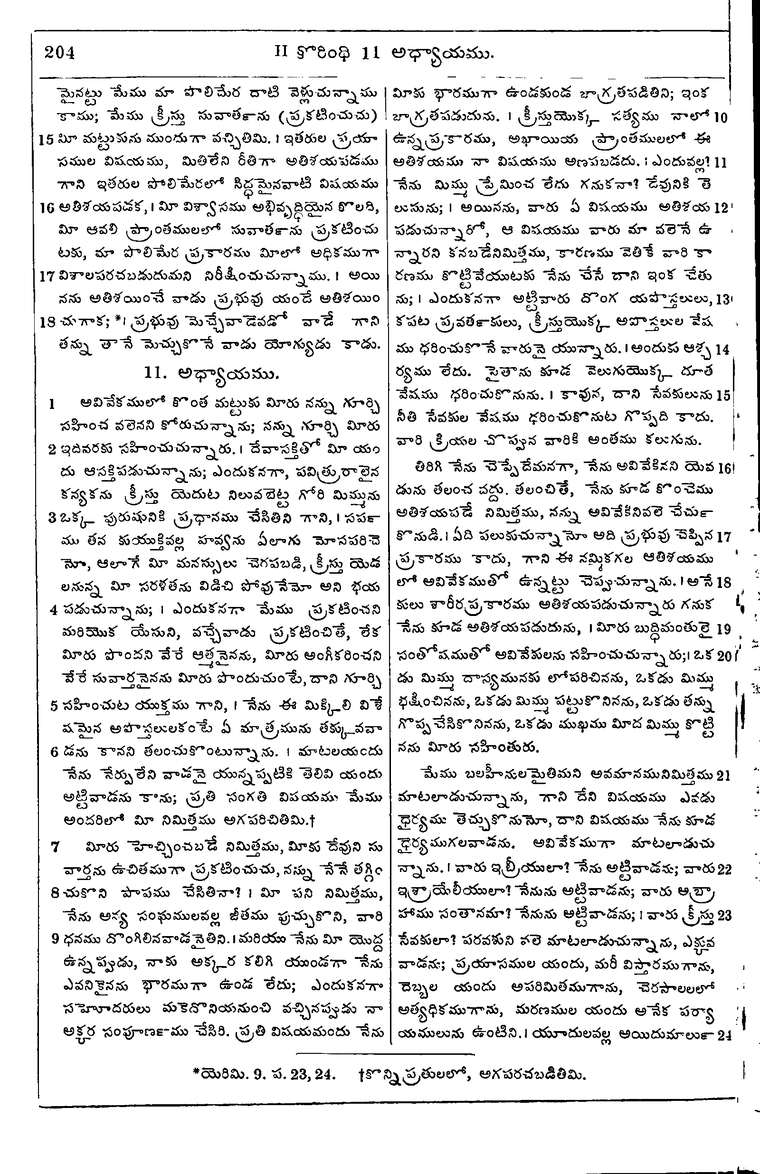 204
II కొరింథి 11 అధ్యాయము.
మైనట్టు మేము మా పొలిమేర దాటి వెళ్లుచున్నాము
కాము; మేము క్రీస్తు సువార్తను (ప్రకటించుచు)
15 మీ మట్టుకును ముందుగా వచ్చితిమి. । ఇతరుల ప్రయా
సముల విషయము, మితిలేని రీతిగా అతిశయపడము
గాని ఇతరుల పొలిమేరలో సిద్ధమైనవాటి విషయము
16 అతిశయపడక, । మీ విశ్వాసము అభివృద్ధియైన కొలది,
మీ ఆవలి ప్రాంతములలో సువార్తను ప్రకటించు
టకు, మా పొలిమేర ప్రకారము మీలో అధికముగా
17 విశాలపరచబడుదుమని నిరీక్షించుచున్నాము. । అయి
నను అతిశయించే వాడు ప్రభువు యందే అతిశయిం
18 చుగాక; *। ప్రభువు మెచ్చేవాడెవడో వాడే గాని
తన్ను తానే మెచ్చుకొనే వాడు యోగ్యుడు కాడు.
11. అధ్యాయము.
1 అవివేకములో కొంత మట్టుకు మీరు నన్ను గూర్చి
సహించ వలెనని కోరుచున్నాను; నన్ను గూర్చి మీరు
2 ఇదివరకు సహించుచున్నారు. । దేవాసక్తితో మీ యం
దు ఆసక్తిపడుచున్నాను; ఎందుకనగా, పవిత్రురాలైన
కన్యకను క్రీస్తు యెదుట నిలువబెట్ట గోరి మిమ్మును
3 ఒక్క పురుషునికి ప్రధానము చేసితిని గాని, । సర్ప
ము తన కుయుక్తివల్ల హవ్వను ఏలాగు మోసపరిచె
నో, ఆలాగే మీ మనస్సులు చెరపబడి, క్రీస్తు యెడ
లనున్న మీ సరళతను విడిచి పోవునేమో అని భయ
4 పడుచున్నాను; । ఎందుకనగా మేము ప్రకటించని
మరియొక యేసుని, వచ్చేవాడు ప్రకటించితే, లేక
మీరు పొందని వేరే ఆత్మనైనను, మీరు అంగీకరించని
వేరే సువార్తనైనను మీరు పొందుచుంటే, దాని గూర్చి
5 సహించుట యుక్తము గాని, । నేను ఈ మిక్కిలి విశే
షమైన అపొస్తలులకంటే ఏ మాత్రమును తక్కువవా
6 డను కానని తలంచుకొంటున్నాను. । మాటలయందు
నేను నేర్పులేని వాడనై యున్నప్పటికి తెలివి యందు
అట్టివాడను కాను; ప్రతి సంగతి విషయమై మేము
అందరిలో మీ నిమిత్తము అగపరిచితిమి.†
7 మీరు హెచ్చించబడే నిమిత్తము, మీకు దేవుని సు
వార్తను ఉచితముగా ప్రకటించుచు, నన్ను నేనే తగ్గిం
8 చుకొని పాపము చేసితినా? । మీ పని నిమిత్తము,
నేను అన్య సంఘములవల్ల జీతము పుచ్చుకొని, వారి
9 ధనము దొంగిలినవాడనైతిని. । మరియు నేను మీ యొద్ద
ఉన్నప్పుడు, నాకు అక్కర కలిగి యుండగా నేను
ఎవనికైనను భారముగా ఉండ లేదు; ఎందుకనగా
సహోదరులు మకెదొనియనుంచి వచ్చినప్పుడు నా
అక్కర సంపూర్ణము చేసిరి. ప్రతి విషయమందు నేను
మీకు భారముగా ఉండకుండ జాగ్రతపడితిని; ఇంక
జాగ్రతపడుదును. । క్రీస్తుయొక్క సత్యము నాలో 10
ఉన్న ప్రకారము, అఖాయియ ప్రాంతములలో ఈ
అతిశయము నా విషయము అణపబడదు. । ఎందువల్ల? 11
నేను మిమ్ము ప్రేమించ లేదు గనుకనా? దేవునికి తె
లుసును; । అయినను, వారు ఏ విషయము అతిశయ 12
పడుచున్నారో, ఆ విషయము వారు మా వలెనే ఉ
న్నారని కనబడేనిమిత్తము, కారణము వెతికే వారి కా
రణము కొట్టివేయుటకు నేను చేసే దాని ఇంక చేతు
ను; । ఎందుకనగా అట్టివారు దొంగ యపొస్తలులు, 13
కపట ప్రవర్తకులు, క్రీస్తుయొక్క అపొస్తలుల వేష
ము ధరించుకొనే వారునై యున్నారు. । అందుకు ఆశ్చ 14
ర్యము లేదు. సైతాను కూడ వెలుగుయొక్క దూత
వేషము ధరించుకొనును. । కావున, దాని సేవకులును 15
నీతి సేవకుల వేషము ధరించుకొనుట గొప్పది కాదు.
వారి క్రియల చొప్పున వారికి అంతము కలుగును.
తిరిగి నేను చెప్పేదేమనగా, నేను అవివేకినని యెవ 16
డును తలంచ వద్దు. తలంచితే, నేను కూడ కొంచెము
అతిశయపడే నిమిత్తము, నన్ను అవివేకినివలె చేర్చు
కొనుడి. । ఏది పలుకుచున్నానో అది ప్రభువు చెప్పిన 17
ప్రకారము కాదు, గాని ఈ నమ్మికగల అతిశయము
లో అవివేకముతో ఉన్నట్టు చెప్పుచున్నాను. । అనే 18
కులు శారీరప్రకారము అతిశయపడుచున్నారు గనుక
నేను కూడ అతిశయపడుదును, । మీరు బుద్ధిమంతులై 19
సంతోషముతో అవివేకులను సహించుచున్నారు; । ఒక 20
డు మిమ్ము దాస్యమునకు లోపరిచినను, ఒకడు మిమ్ము
భక్షించినను, ఒకడు మిమ్ము పట్టుకొనినను, ఒకడు తన్ను
గొప్ప చేసికొనినను, ఒకడు ముఖము మీద మిమ్ము కొట్టి
నను మీరు సహింతురు.
మేము బలహీనులమైతిమని అవమాననునిమిత్తము 21
మాటలాడుచున్నాను, గాని దేని విషయము ఎవడు
ధైర్యము తెచ్చుకొనునో, దాని విషయము నేను కూడ
ధైర్యముగలవాడను. అవివేకముగా మాటలాడుచు
న్నాను. । వారు ఇబ్రీయులా? నేను అట్టివాడను; వారు 22
ఇశ్రాయేలీయులా? నేనును అట్టివాడను; వారు అబ్రా
హాము సంతానమా? నేనును అట్టివాడను; । వారు క్రీస్తు 23
సేవకులా? పరవశుని వలె మాటలాడుచున్నాను, ఎక్కువ
వాడను; ప్రయాసముల యందు, మరీ విస్తారముగాను,
దెబ్బల యందు అపరిమితముగాను, చెరసాలలలో
అత్యధికముగాను, మరణముల యందు అనేక పర్యా
యములును ఉంటిని. । యూదులవల్ల అయిదుమారులు 24
*యెరిమి. 9. ప. 23, 24. †కొన్ని ప్రతులలో, అగపరచబడితిమి.